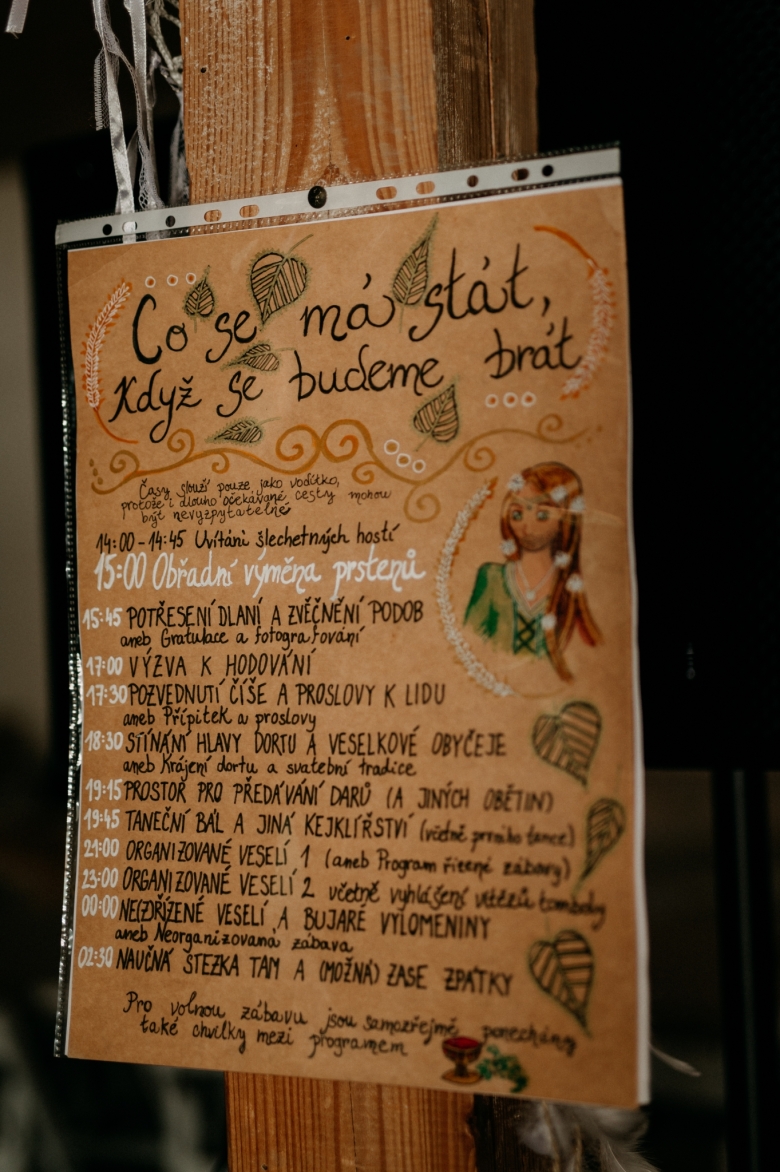 Co se má stát,
Když se budeme brát
Časy slouží pouze jako vodítko,
protože i dlouho očekávané cesty mohou
být nevyzpytatelné
14:00-14:45 Uvítání šlechetných hostí
15:00 Obřadní výměna prstenů
15:45 POTŘESENÍ DLANÍ A ZVĚČNĚNÍ PODOB
aneb Gratulace a fotografování
17:00 VÝZVA K HODOVÁNÍ
17:30 POZVEDNUTÍ ČÍŠE A PROSLOVY K LIDU
aneb Přípitek a proslovy
18:30 STÍNÁNÍ HLAVY DORTU A VESELKOVÉ OBYČEJE
aneb Krájení dortu a svatební tradice
19:15 PROSTOR PRO PŘEDÁVÁNÍ DARŮ (A JINÝCH OBĚTIN)
19:45 TANEČNÍ BÁL A JINÁ KEJKLÍŘSTVÍ (včetně prvního tance)
21:00 ORGANIZOVANÉ VESELÍ 1 (aneb Program řízené zábavy)
23:00 ORGANIZOVANÉ VESELÍ 2 včetně vyhlášení vítězů tomboly
00:00 NE(Z)ŘÍZENÉ VESELÍ A BUJARÉ VYLOMENINY
aneb Neorganizovaná zábava
02:30 NAUČNÁ STEZKA TAM A (MOŽNÁ) ZASE ZPÁTKY
Pro volnou zábavu jsou samozřejmě ponechány
také chvilky mezi programem